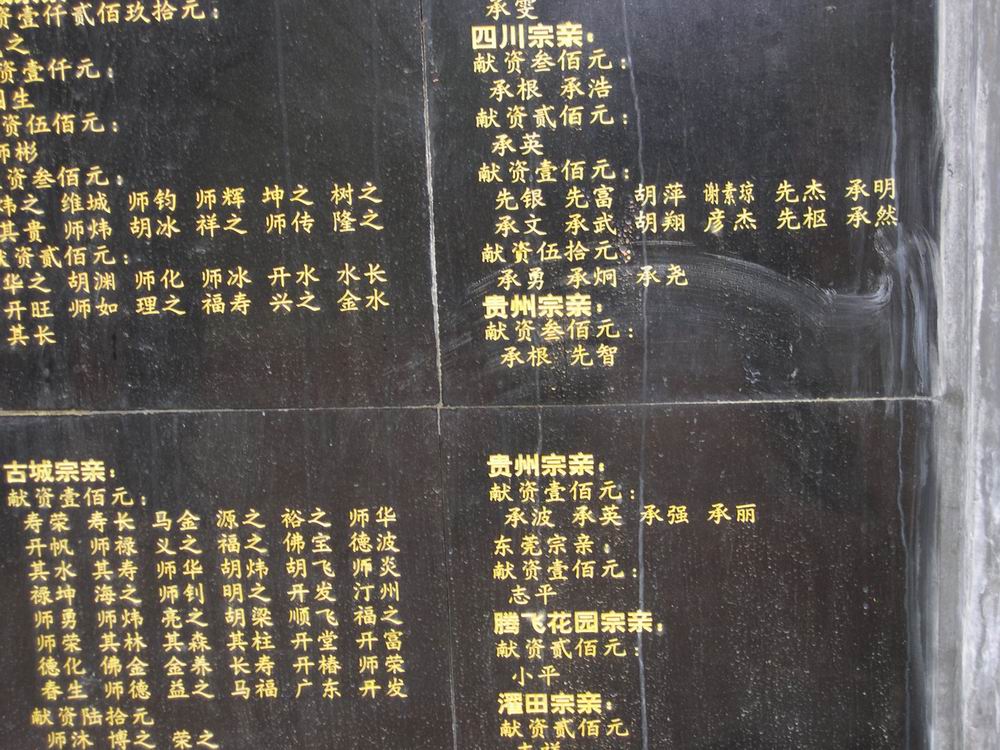 资壹仟贰佰玖拾元：
之
资壹仟元：
生
资伍佰元：
师彬
资叁佰元：
炜之 维城 师钧 师辉 坤之 树之
其贵 师炜 胡冰 祥之 师传 隆之
献资贰佰元：
华之 胡渊 师化 师冰 开水 水长
丹旺 师如 理之 福寿 兴之 金水
其长
承雯
四川宗亲：
献资叁佰元：
承根 承浩
献资贰佰元：
承英
献资壹佰元：
先银 先富 胡萍 谢素琼 先杰 承明
承文 承武 胡翔 彦杰 先枢 承然
献资伍拾元：
承勇 承炯 承尧
贵州宗亲：
献资叁佰元：
承根 先智
古城宗亲：
献资壹佰元：
寿荣 寿长 马金 源之 裕之 师华
丹帆 师禄 义之 福之 佛宝 德波
其水 其寿 师华 胡炜 胡飞 师炎
禄坤 海之 师钊 明之 丹发 汀州
师勇 师炜 亮之 胡梁 顺飞 福之
师荣 其林 其森 其柱 丹堂 丹富
德化 佛金 金养 长寿 丹椿 师荣
春生 师德 益之 马福 广东 丹发
献资陆拾元
师沐 博之 荣之
贵州宗亲：
献资壹佰元：
承波 承英 承强 承丽
东莞宗亲：
献资壹佰元：
志平
腾飞花园宗亲：
献资贰佰元：
小平
濯田宗亲：
献资贰佰元